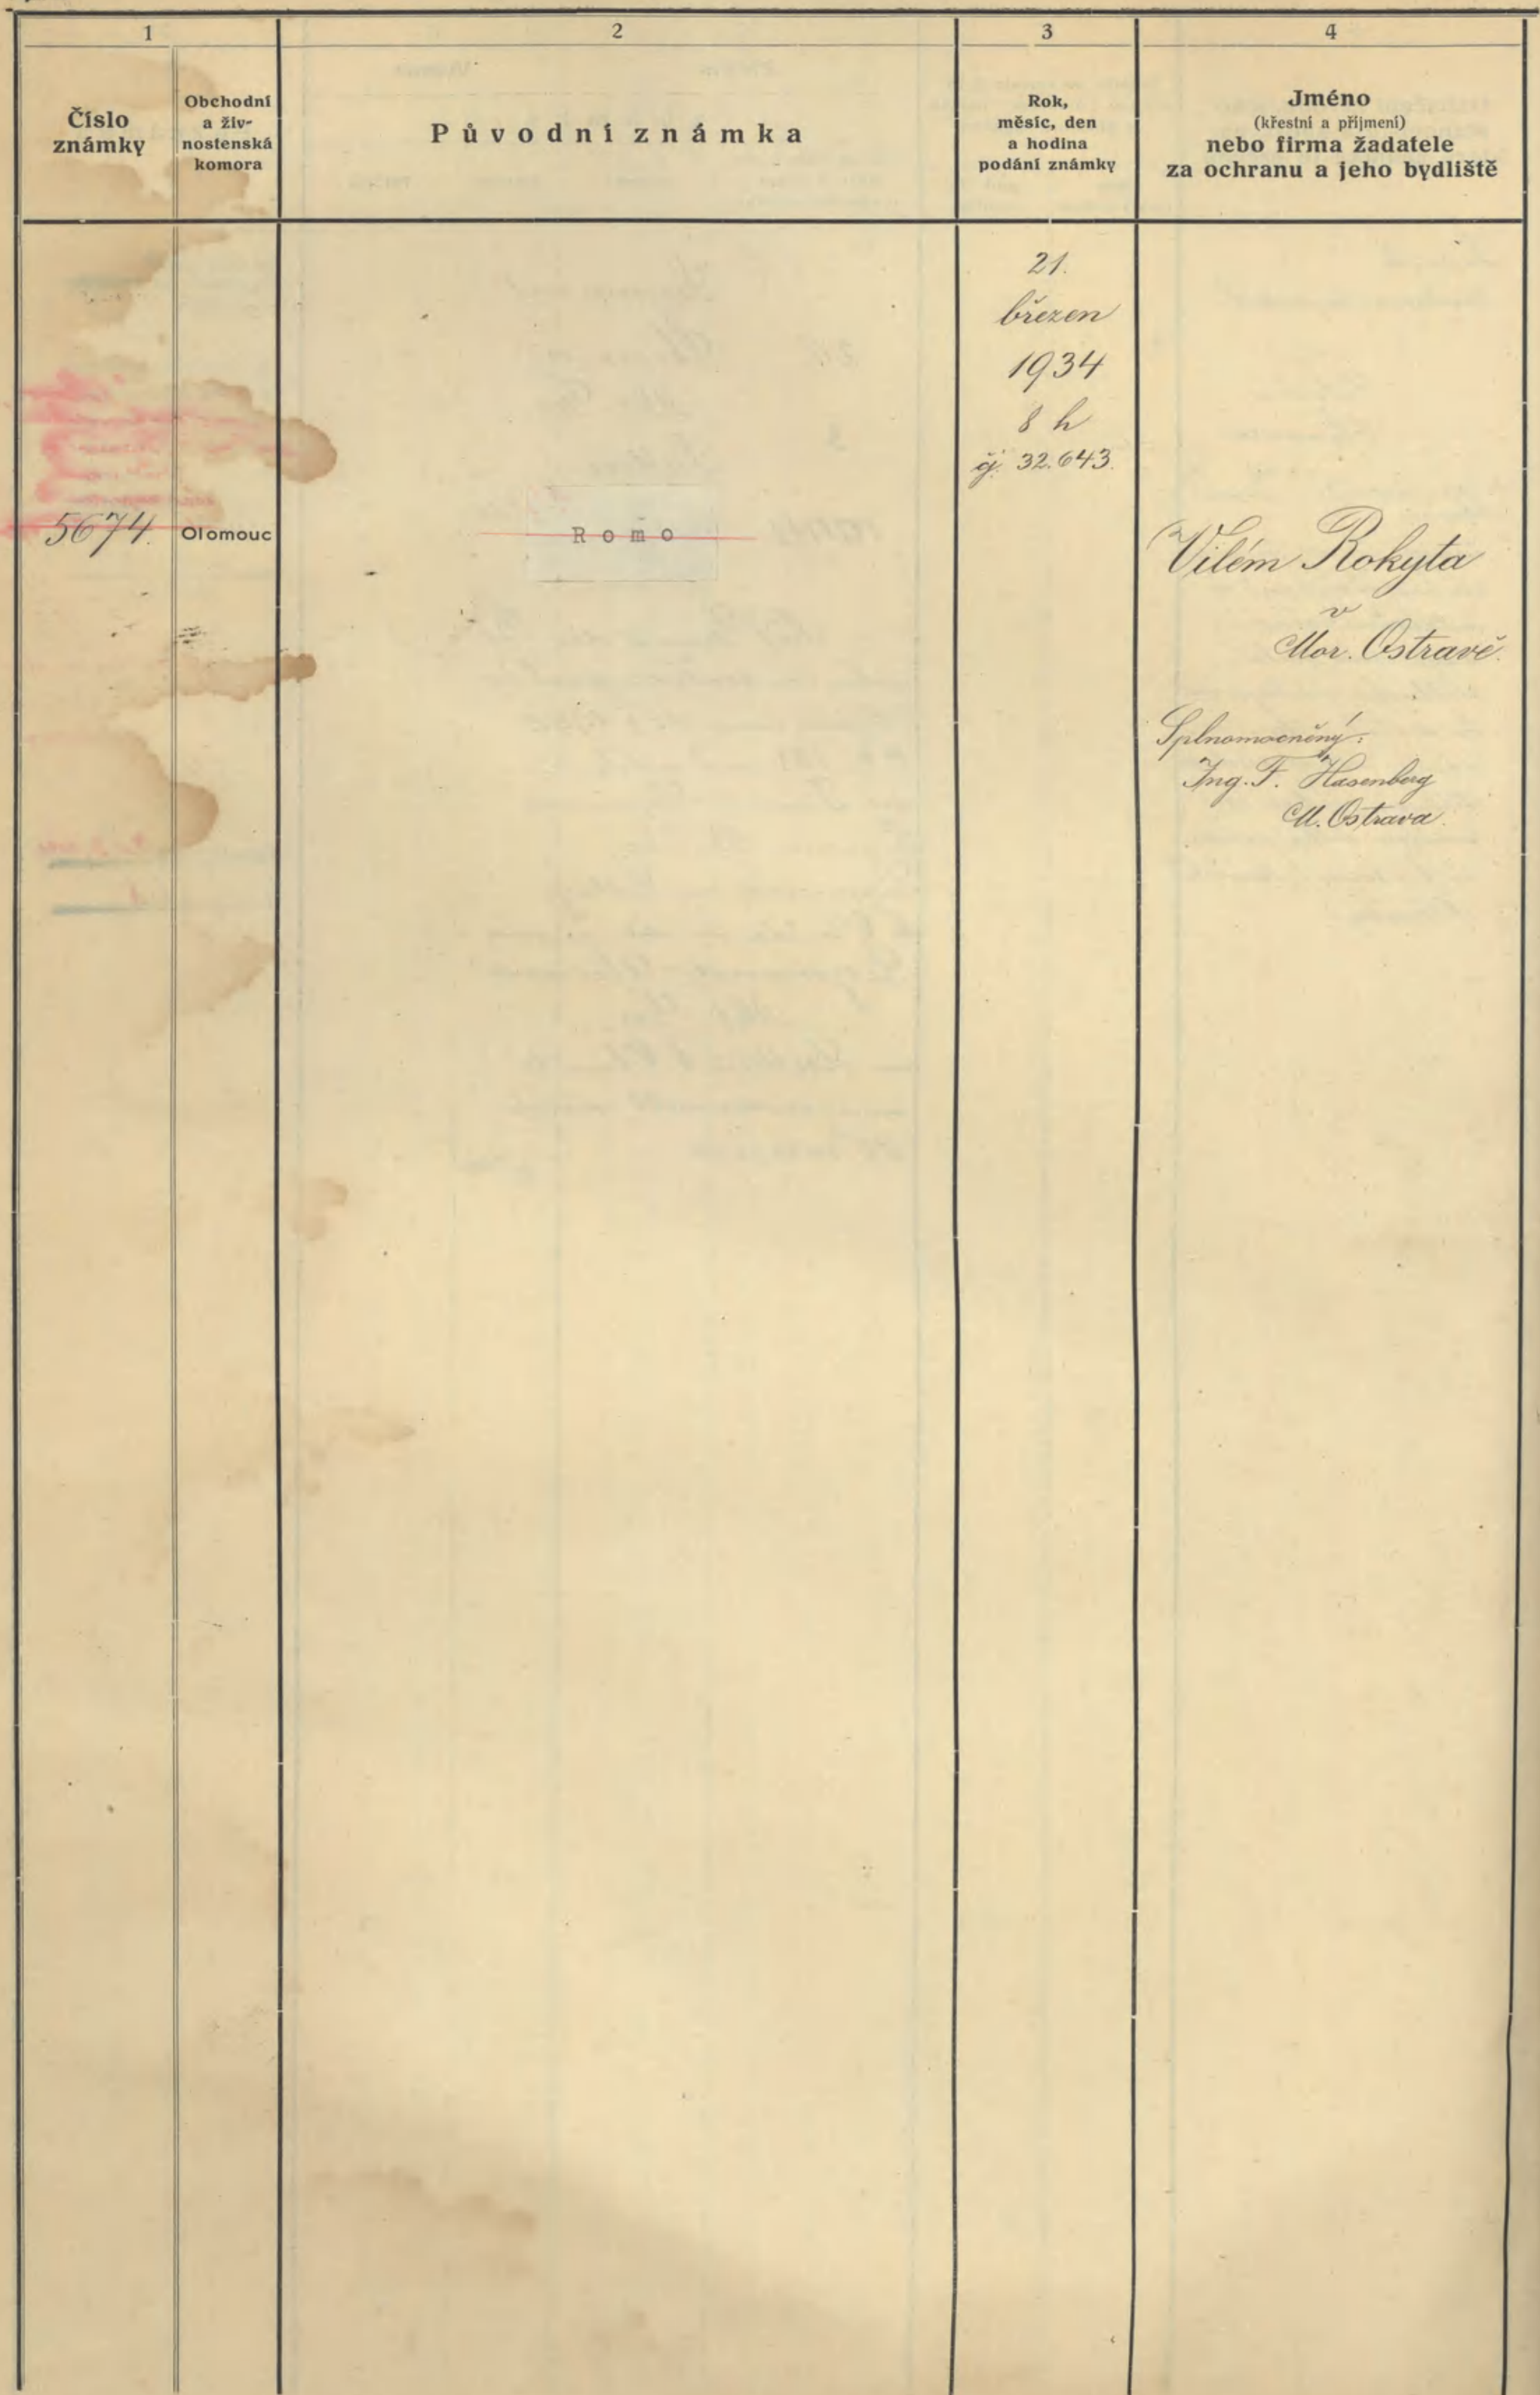 1
2
3
4
Číslo
známky
Obchodní
a živ-
nostenská
komora
Původní známka
Rok,
měsíc, den
a hodina
podání známky
Jméno
(křestní a příjmení)
nebo firma žadatele
za ochranu a jeho bydliště
21.
březen
1934
8 h
čj. 32.643.
5674.
Olomouc
Romo
Vilém Rokyta
v
Mor. Ostravě.
Splnomocněný:
Ing. F. Hasenberg
M. Ostrava.